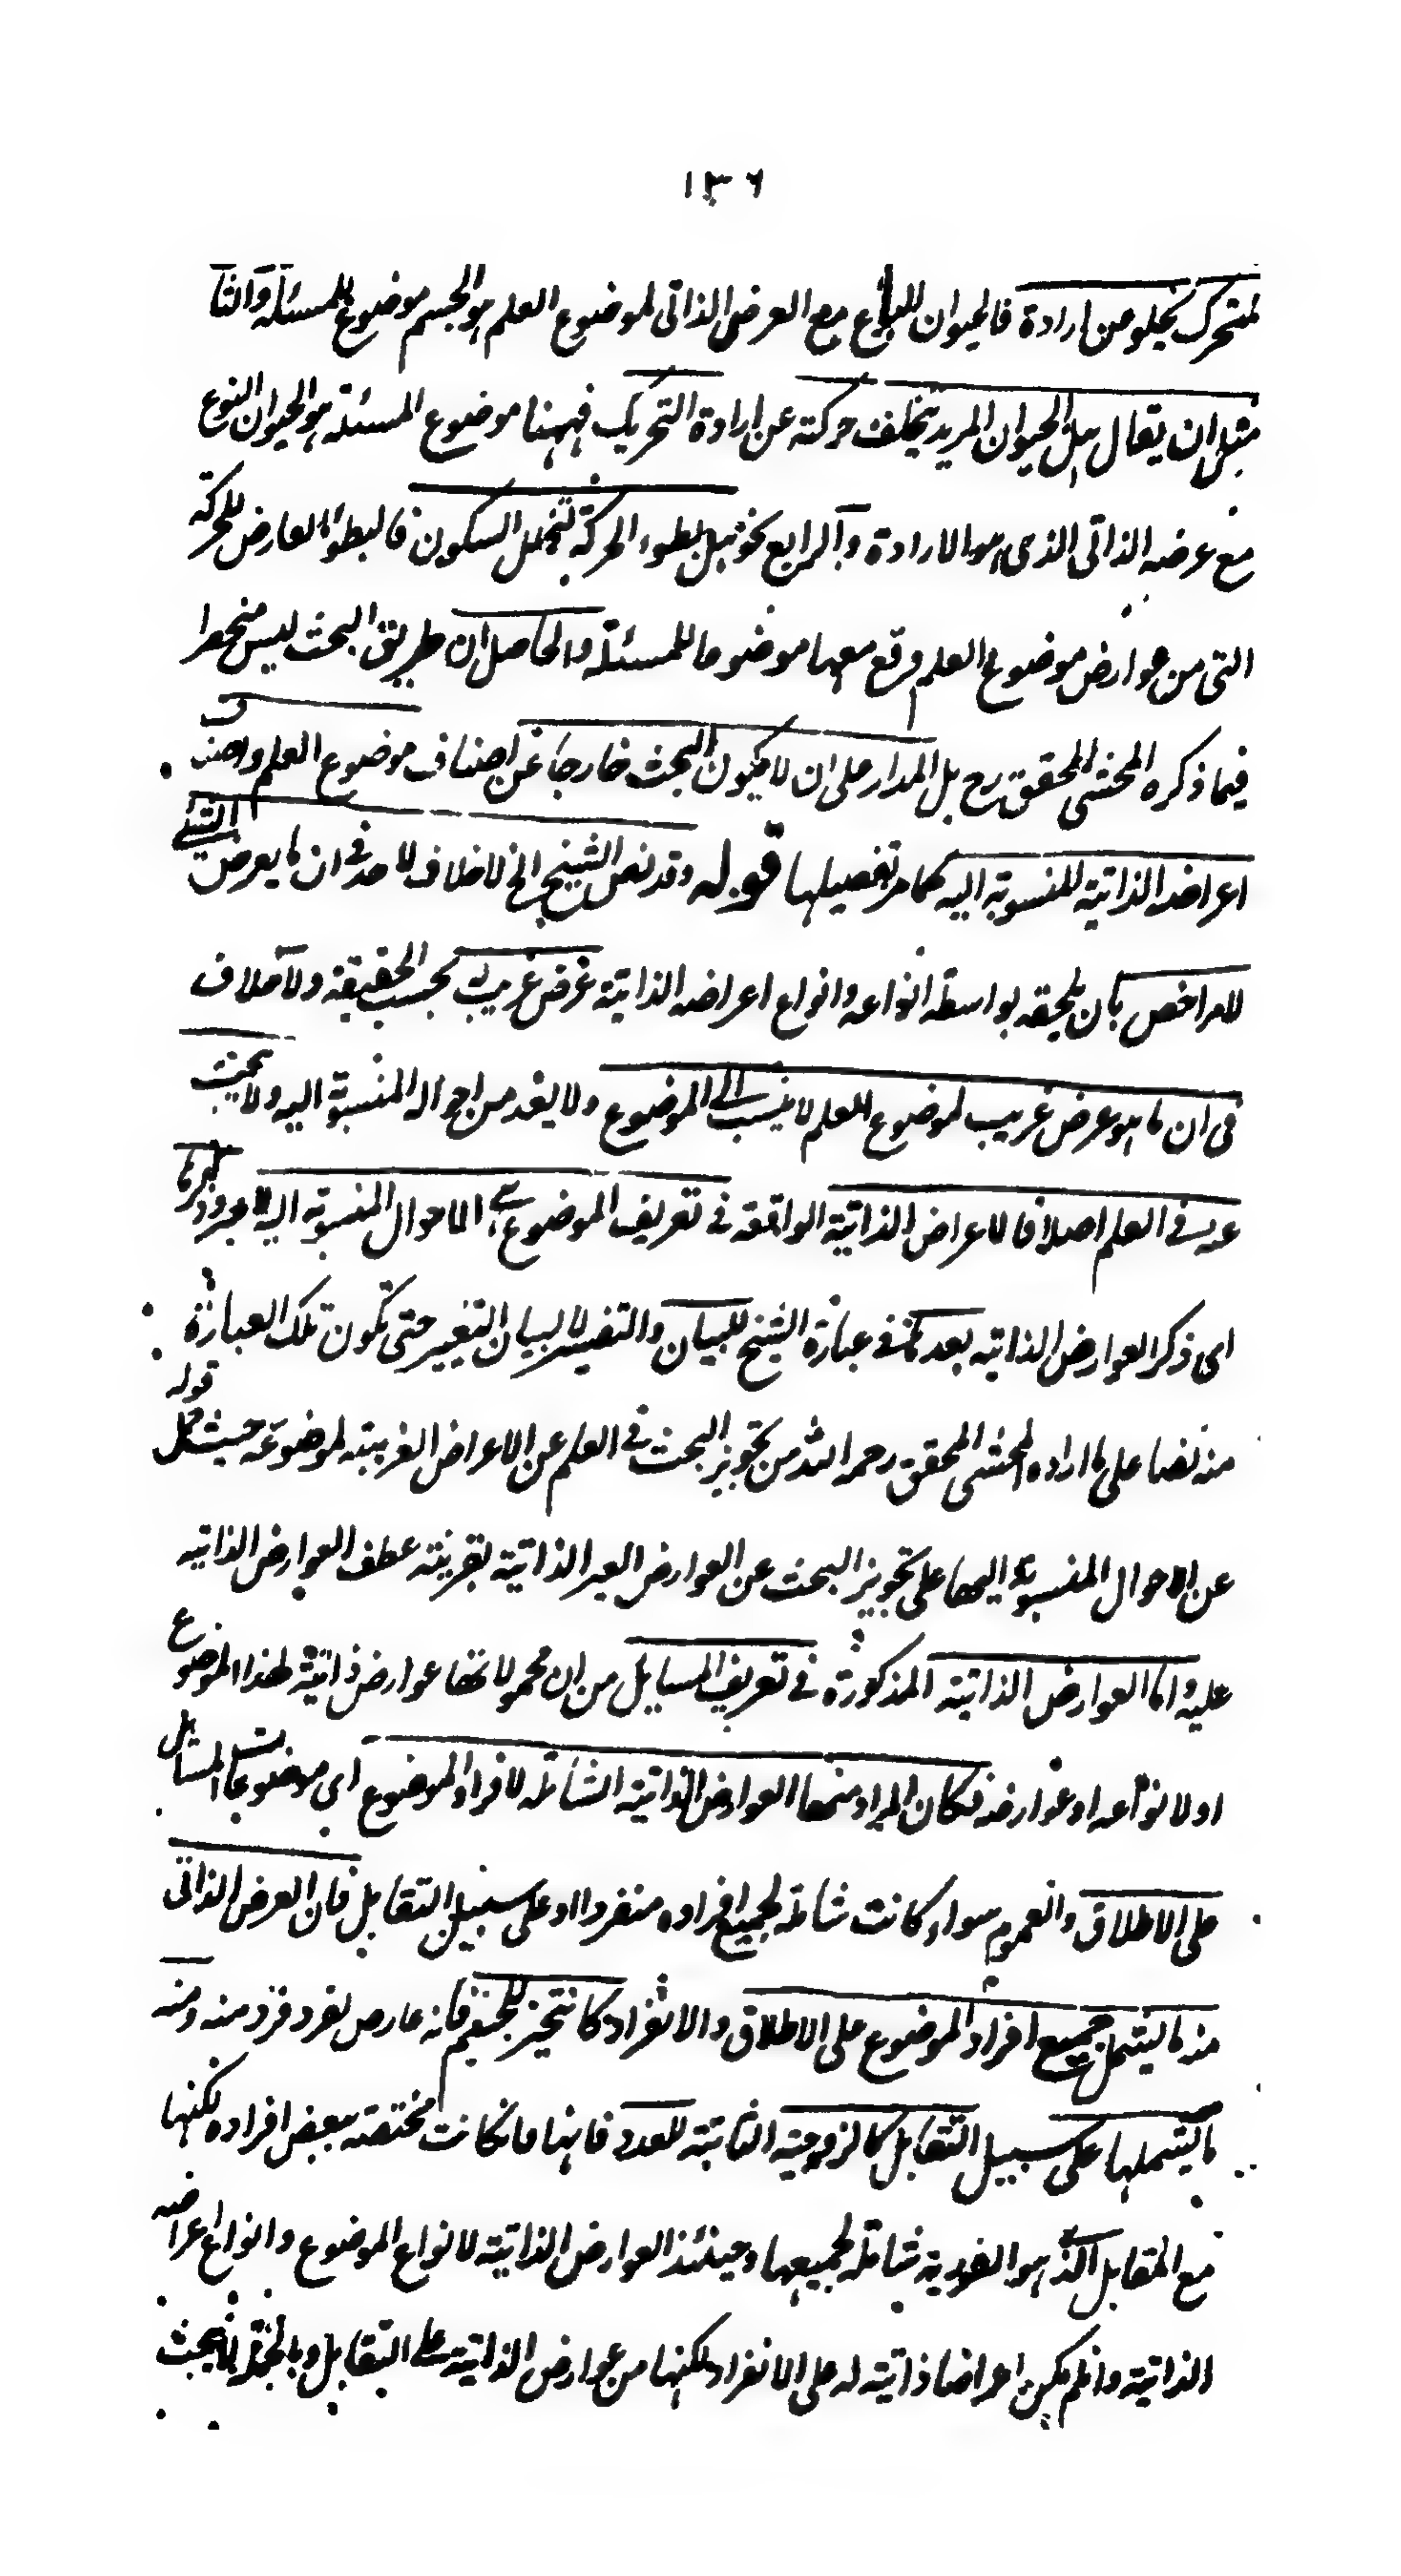 ١٣٦
لمتحرك يخلو من ارادة فالحيوان مع العرض الذاتى لموضوع العلم هو الجسم موضوع للمسئلة والثا
مثل ان يقال هل الحيوان المريد يتخلف حركته عن ارادة التحريك فههنا موضوع المسئلة هو الحيوان النوع
مع عرضه الذاتى الذى هو الارادة والرابع نحو هل بطوء الحركة لتخلل السكون فالبطوء العارض للحركة
التى من عوارض موضوع العلم وقع معها موضوعا للمسئلة والحاصل ان طريق البحث ليس منحصرا
فيما ذكره المحشى المحقق رح بل المدار على ان لا يكون البحث خارجا عن اصناف موضوع العلم واصناف
اعراضه الذاتية المنسوبة اليه كما مر تفصيلها قوله وقد نص الشيخ الخ لا خلاف لاحد فى ان ما يعرض الشئ
للامر اخص بان يلحقه بواسطة انواعه وانواع اعراضه الذاتية عرض غريب بحسب الحقيقة ولا خلاف
فى ان ما هو عرض غريب لموضوع العلم لا ينسب الى الموضوع ولا يعد من احواله المنسوبة اليه ولا يبحث
عنه فى العلم اصلا فالاعراض الذاتية الواقعة فى تعريف الموضوع هى الاحوال المنسوبة اليه لا غير وذكرها
اى ذكر العوارض الذاتيه بعد فى عبارة الشيخ للبيان والتفسير لا لبيان التغيير حتى تكون تلك العبارة
منه نصا على ما اراده المحشى المحقق رحمه الله من تجويز البحث فى العلم عن الاعراض الغريبة لموضوعه حيث حمل قوله
عن الاحوال المنسوبة اليها على تجويز البحث عن العوارض الغير الذاتية بقرينة عطف العوارض الذاتيه
عليه واما العوارض الذاتية المذكورة فى تعريف المسايل من ان محمولاتها عوارض ذاتية لهذا الموضوع
او لانواعه او عوارضه فكان المراد منها العوارض الذاتية الشاملة لافراد الموضوع اى موضوعات المسائل
على الاطلاق والعموم سواء كانت شاملة لجميع افراده منفردا او على سبيل التقابل فان العرض الذاتى
منه ما يشمل جميع افراد الموضوع على الاطلاق والانفراد كالتحيز للجسم فانه عارض لفرد فرد منه ومنه
ما يشملها على سبيل التقابل كالزوجية الثابتة للعدد فانها وان كانت مختصة ببعض افراده لكنها
مع المقابل الذى هو الفردية شاملة لجميعها وحينئذ العوارض الذاتية لانواع الموضوع وانواع اعراضه
الذاتية وان لم يكن اعراضا ذاتية له على الانفراد لكنها من عوارض الذاتية على التقابل وبالجملة البحث